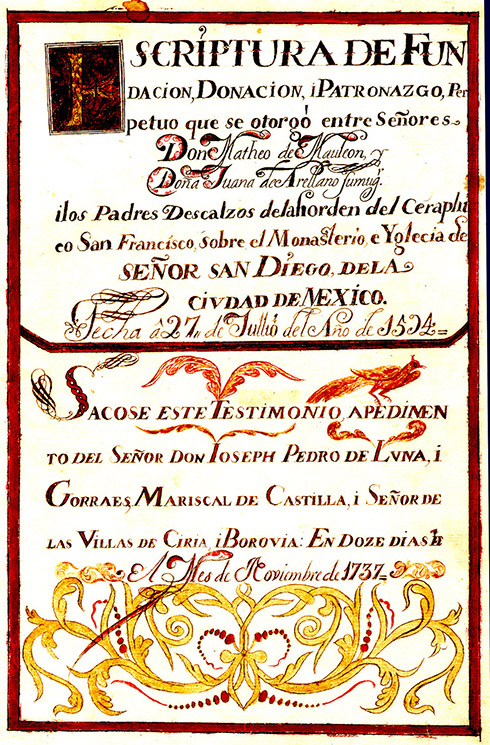 ESCRIPTURA DE FUN
DACION, DONACION, i PATRONAZGO, Per
petuo que se otorgó entre Señores
Don Matheo de Mauleon, y
Doña Juana de Arellano sumug.
ilos Padres Descalzos delahorden del Ceraphi
co San Francisco, sobre el Monasterio, e Yglecia de
SEÑOR SAN DIEGO, DELA
CIVDAD DE MEXICO.
Fecha â 27,, de Jullio del Año de 1594=
SACOSE ESTE TESTIMONIO, APEDIMEN
TO DEL SEÑOR DON IOSEPH PEDRO DE LVNA, i
GORRAES, MARISCAL DE CASTILLA, i SEÑOR DE
LAS VILLAS DE CIRIA, i BOROVIA: EN DOZE DIAS DE
El Mes de Noviembre de 1737=